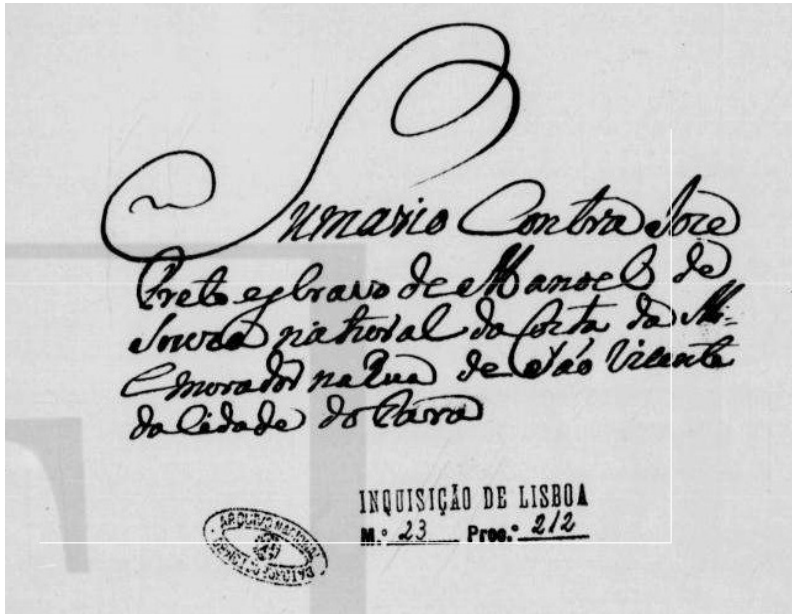 Sumario Contra Joze
Preto escravo de Manoel de
Souza natural da Costa da Mi-
e morador na Rua de São Vicente
da Cidade do Pará
INQUISIÇÃO DE LISBOA
M.º 23 Proc.º 212
ARQUIVO NACIONAL